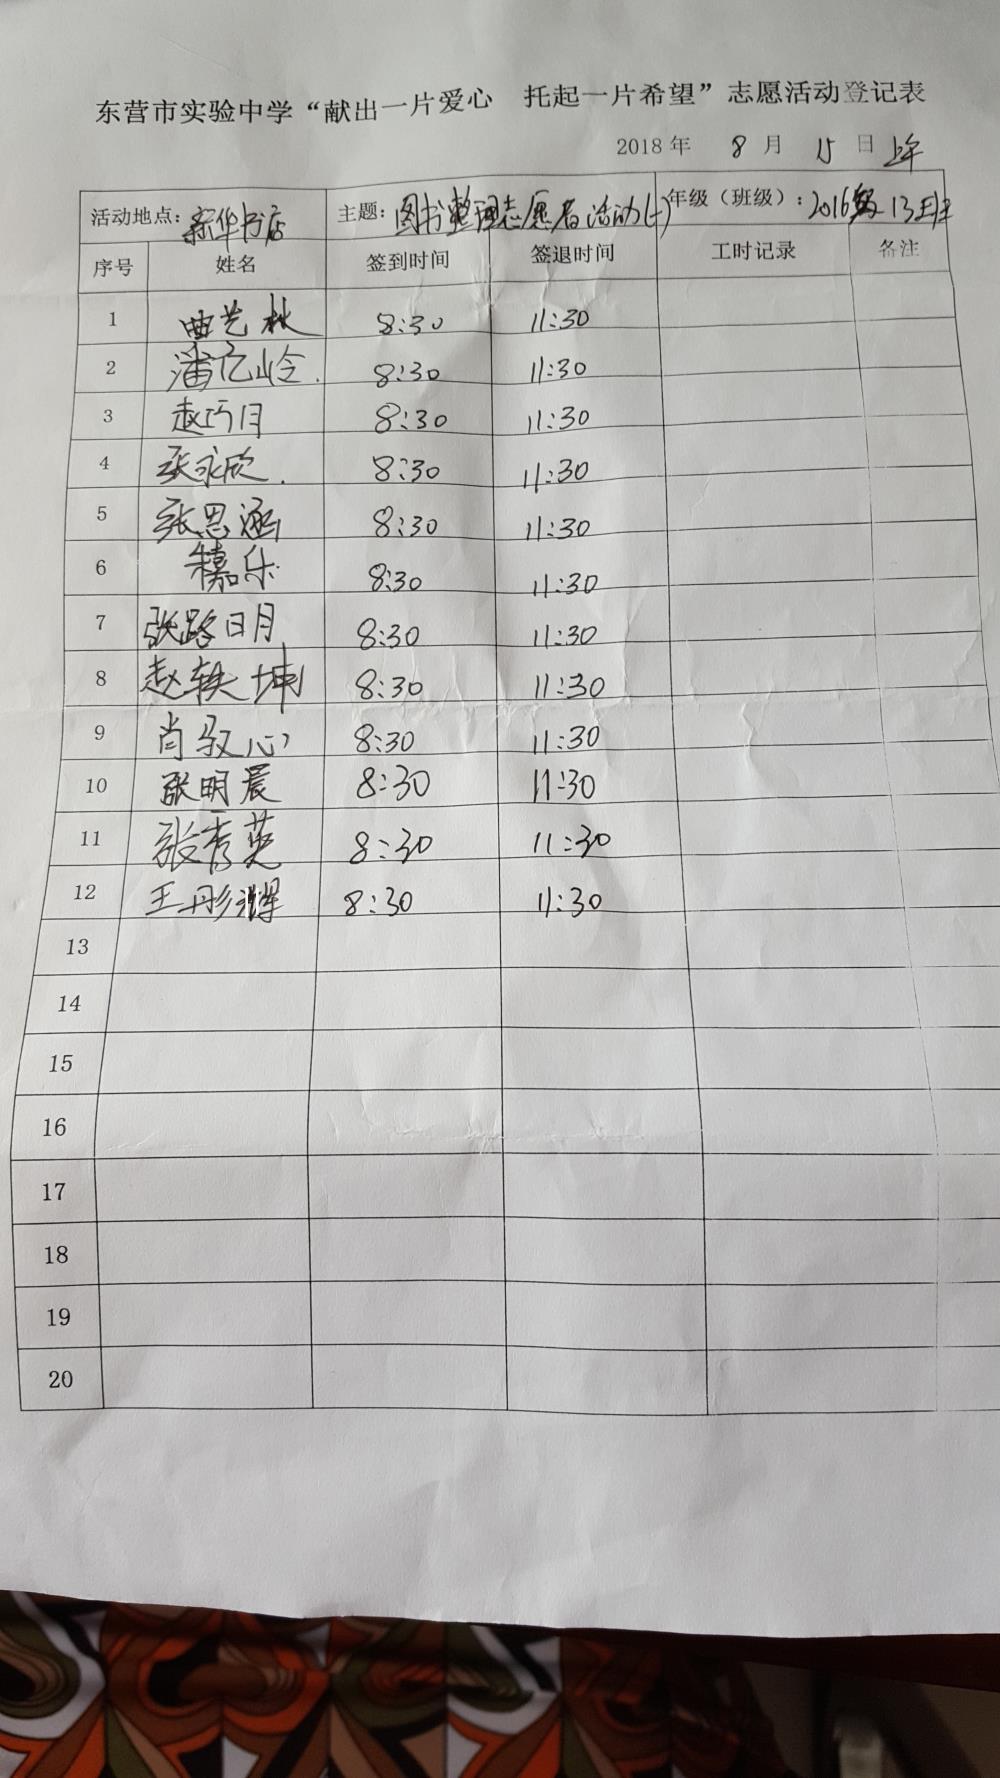 东营市实验中学“献出一片爱心 托起一片希望”志愿活动登记表
2018 年 8 月 15 日 上午
活动地点：新华书店 主题：图书整理志愿者活动(七) 年级（班级）：2016级13班
序号 姓名 签到时间 签退时间 工时记录 备注
1 曲艺秋 8:30 11:30
2 潘亿岭 8:30 11:30
3 赵巧月 8:30 11:30
4 张永欣 8:30 11:30
5 张思涵 8:30 11:30
6 嘉乐 8:30 11:30
7 张路日月 8:30 11:30
8 赵轶坤 8:30 11:30
9 肖驭心 8:30 11:30
10 张明晨 8:30 11:30
11 张秀英 8:30 11:30
12 王彤 8:30 11:30
13
14
15
16
17
18
19
20